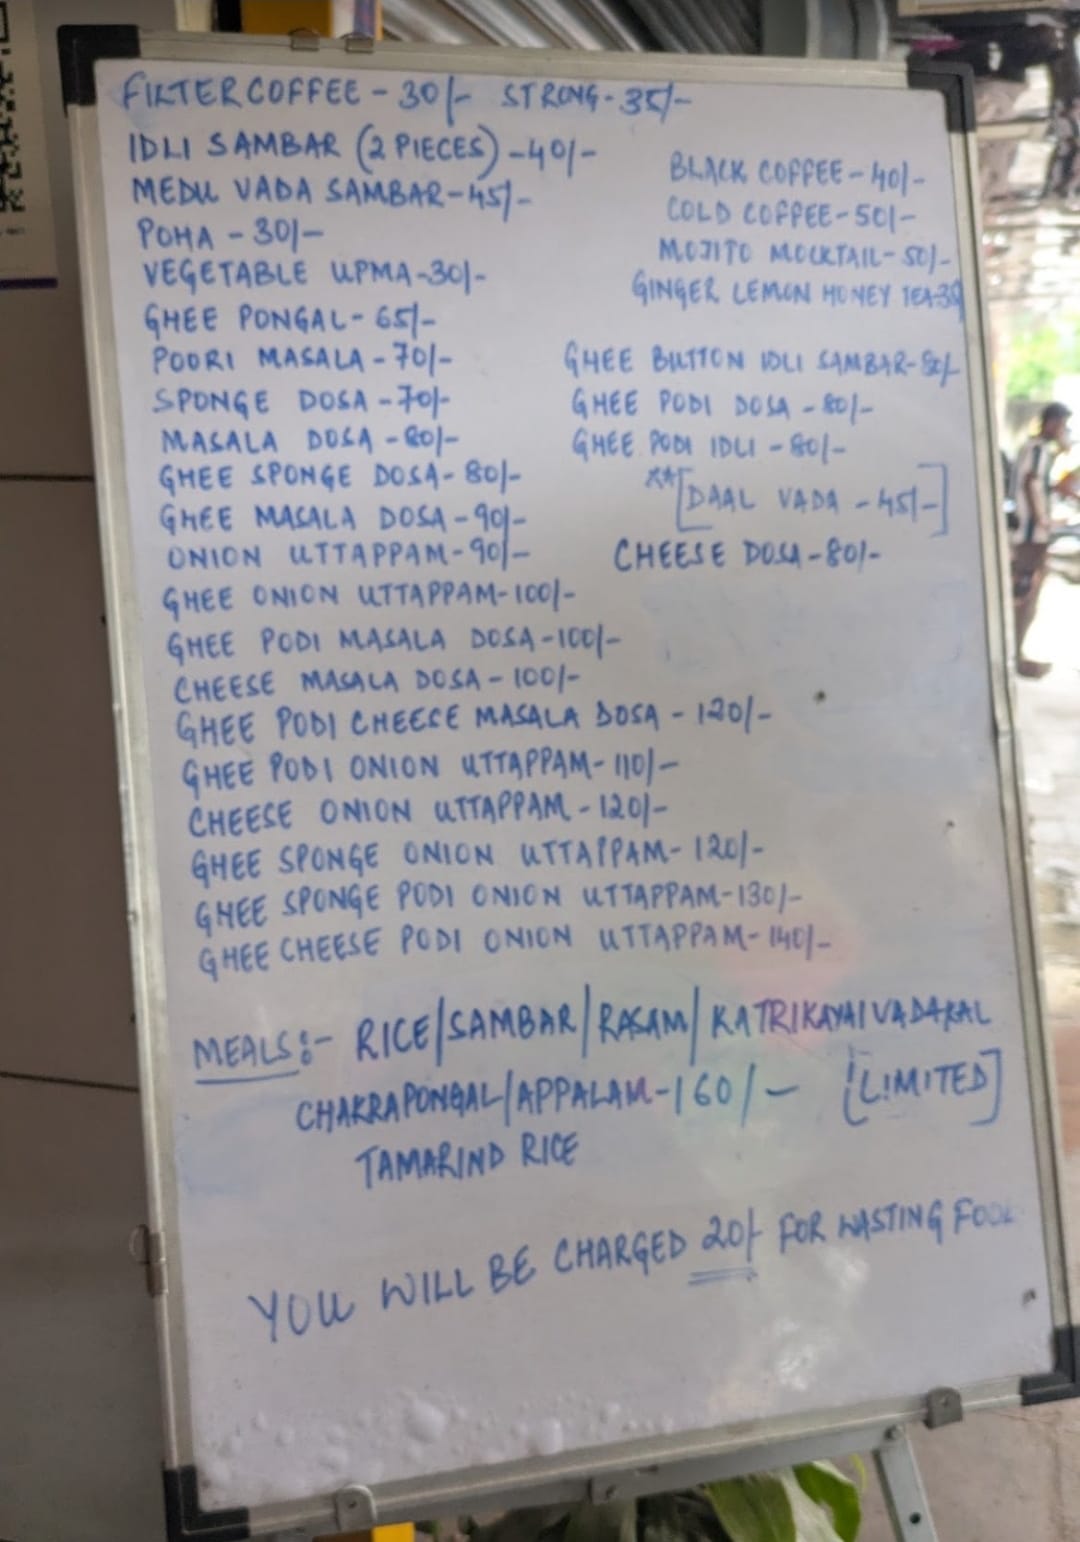 FILTER COFFEE - 30/- STRONG - 35/-
IDLI SAMBAR (2 PIECES) - 40/-
MEDU VADA SAMBAR - 45/-
POHA - 30/-
VEGETABLE UPMA - 30/-
GHEE PONGAL - 65/-
POORI MASALA - 70/-
SPONGE DOSA - 70/-
MASALA DOSA - 80/-
GHEE SPONGE DOSA - 80/-
GHEE MASALA DOSA - 90/-
ONION UTTAPPAM - 90/-
GHEE ONION UTTAPPAM - 100/-
GHEE PODI MASALA DOSA - 100/-
CHEESE MASALA DOSA - 100/-
GHEE PODI CHEESE MASALA DOSA - 120/-
GHEE PODI ONION UTTAPPAM - 110/-
CHEESE ONION UTTAPPAM - 120/-
GHEE SPONGE ONION UTTAPPAM - 120/-
GHEE SPONGE PODI ONION UTTAPPAM - 130/-
GHEE CHEESE PODI ONION UTTAPPAM - 140/-
BLACK COFFEE - 40/-
COLD COFFEE - 50/-
MOJITO MOCKTAIL - 50/-
GINGER LEMON HONEY TEA
GHEE BUTTON IDLI SAMBAR - 80/-
GHEE PODI DOSA - 80/-
GHEE PODI IDLI - 80/-
**[DAAL VADA - 45/-]
CHEESE DOSA - 80/-
MEALS:- RICE/SAMBAR/RASAM/KATRIKAYAI VADAKAL
CHAKRAPONGAL/APPALAM - 160/- [LIMITED]
TAMARIND RICE
YOU WILL BE CHARGED 20/- FOR WASTING FOOD